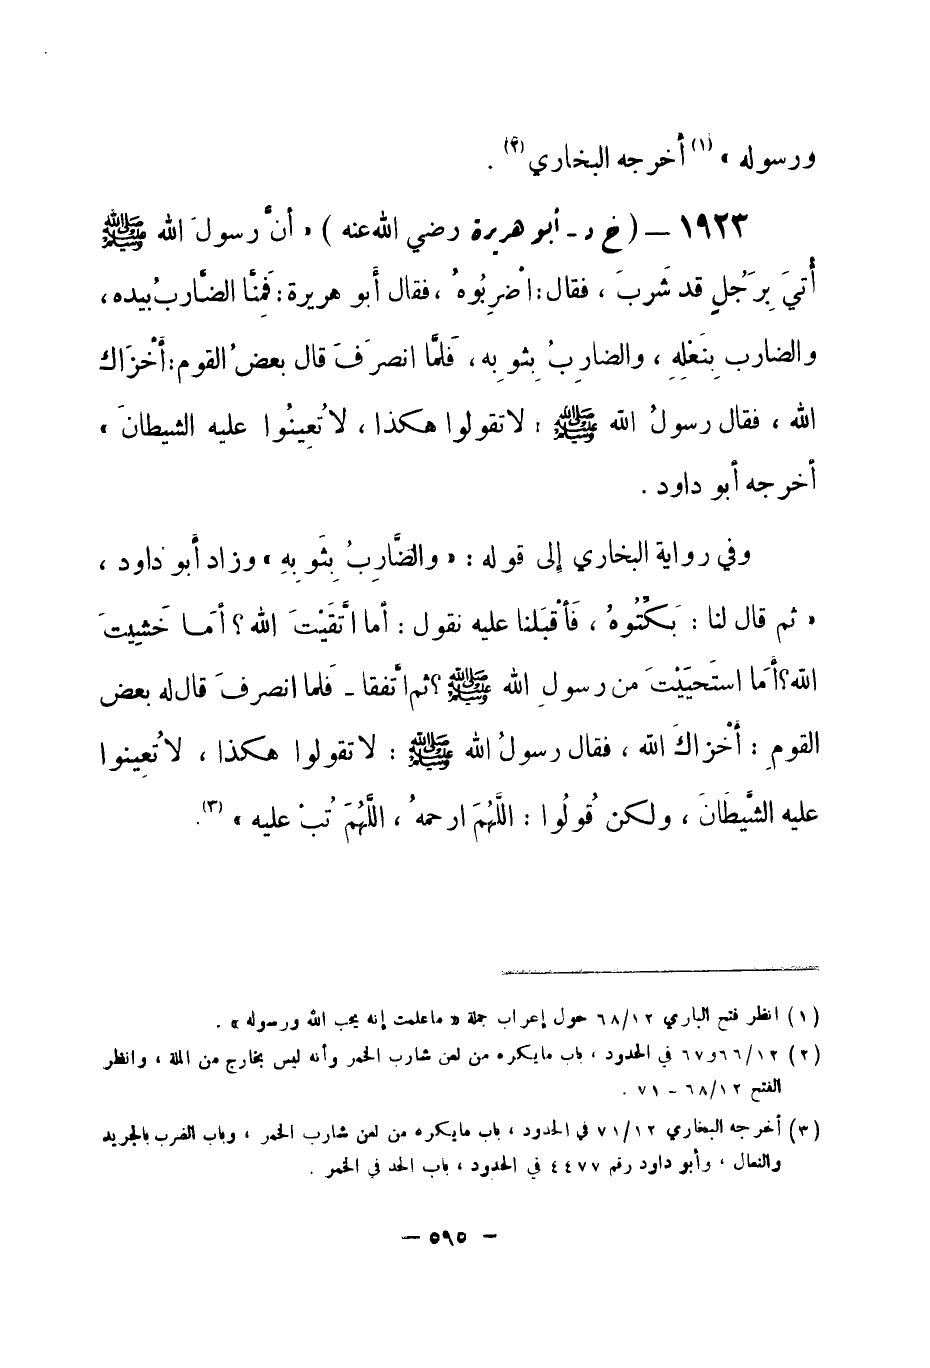 ورسوله » (١) أخرجه البخاري (٢) .
١٩٢٣ – ( خ د - أبو هريرة رضي الله عنه ) « أنَّ رسولَ الله ﷺ
أُتيَ بِرَجُلٍ قد شَربَ ، فقال : اضْرِبُوهُ ، فقال أَبو هريرة : فَمِنَّا الضَّاربُ بيده ،
والضارب بِنَعْلِهِ ، والضاربُ بِثوبِه ، فَلمَّا انصرَفَ قال بعضُ القوم : أَخْزَاكَ
الله ، فقال رسولُ الله ﷺ : لا تقولوا هكذا ، لا تُعِينُوا عليه الشيطانَ »
أخرجه أبو داود .
وفي رواية البخاري إلى قوله : « والضَّاربُ بِثَوبِهِ » وزاد أبو داود ،
« ثم قال لنا : بَكِّتُوهُ ، فَأَقْبَلنا عليه نقول : أَما اتَّقَيْتَ الله ؟ أَمَا خَشِيتَ
الله ؟ أَمَا استَحيَيْتَ من رسولِ الله ﷺ ؟ ثم اتَّفقا - فَلما انصرفَ قال له بعض
القومِ : أَخْزاكَ الله ، فقال رسولُ الله ﷺ : لا تقولوا هكذا ، لا تُعِينوا
عليه الشَّيطَانَ ، ولكن قُولُوا : اللَّهُمَّ ارحمهُ ، اللَّهُمَّ تُبْ عليه » (٣) .
(١) انظر فتح الباري ٦٨/١٢ حول إعراب جملة « ما علمت إنه يحب الله ورسوله » .
(٢) ٦٦/١٢ و ٦٧ في الحدود ، باب ما يكره من لعن شارب الخمر وأنه ليس بخارج من الملة ، وانظر
الفتح ٦٨/١٢ - ٧١ .
(٣) أخرجه البخاري ٧١/١٢ في الحدود ، باب ما يكره من لعن شارب الخمر ، وباب الضرب بالجريد
والنعال ، وأبو داود رقم ٤٤٧٧ في الحدود ، باب الحد في الخمر .
– ٥٩٥ –